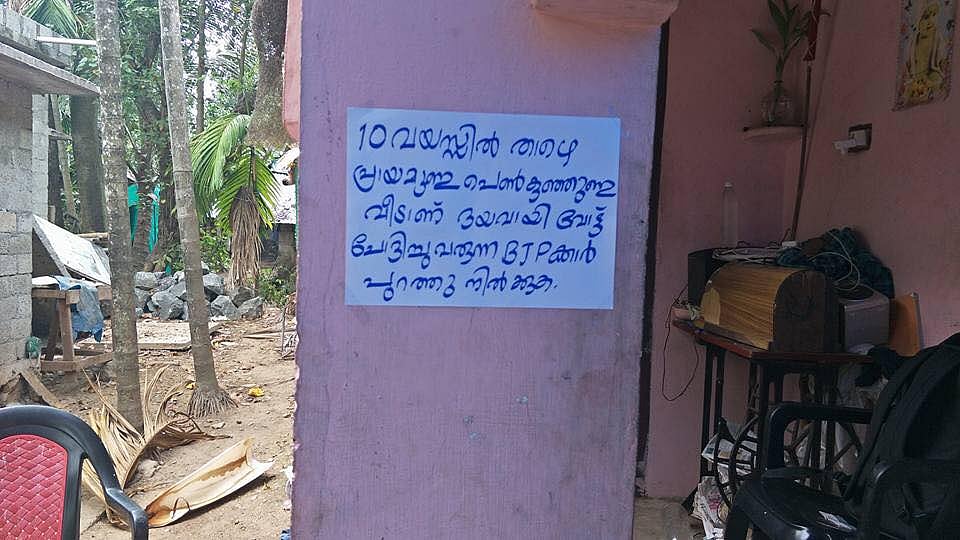 10 വയസ്സിൽ താഴെ
പ്രായമുണ്ട പെൺകുഞ്ഞുണ്ട
വീടാണ് ദയവായി വോട്ട്
ചോദിച്ചുവരുന്ന BJPക്കാർ
പുറത്തു നിൽക്കുക.